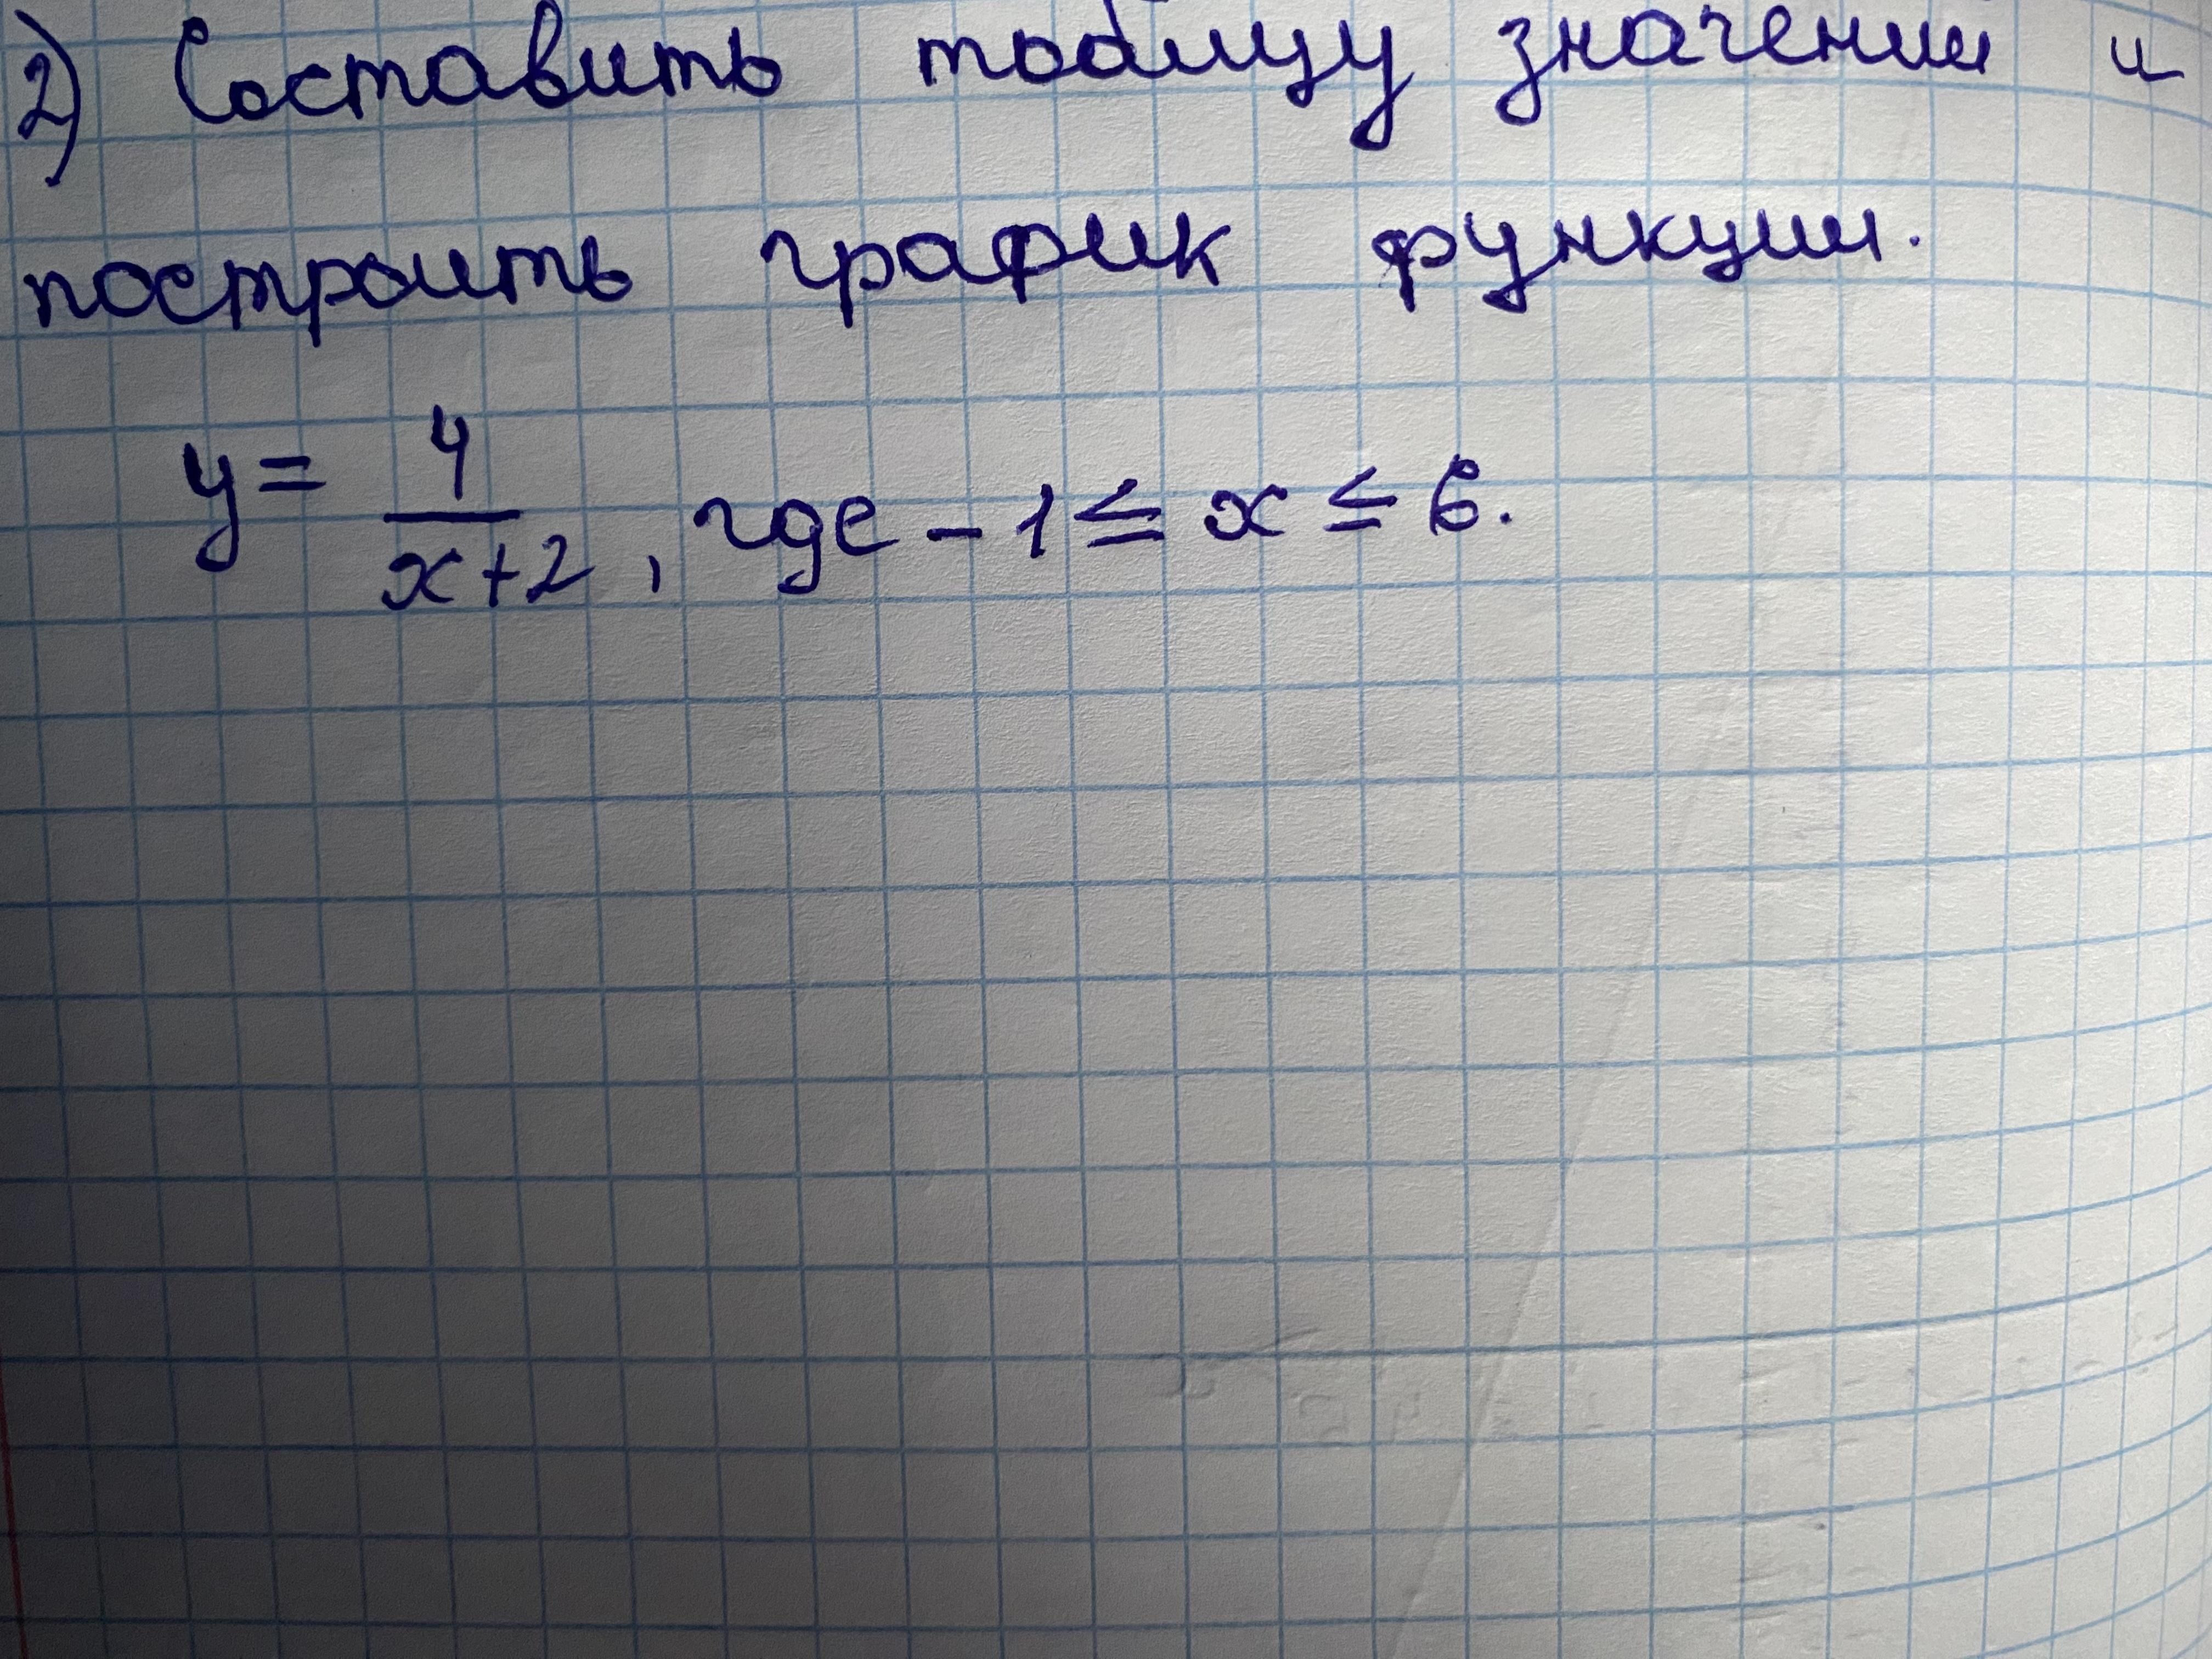 2) Составить таблицу значений и
построить график функции.
y = 4/(x+2), где -1 ≤ x ≤ 6.